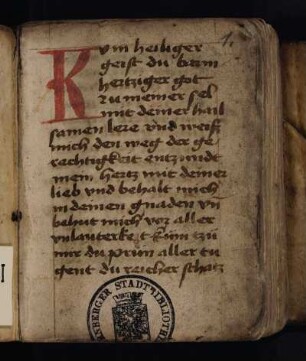 1.
Kum heiliger
geist du barm
hertziger got
zu meiner sel
mit deiner hail
samen lere vnd weisz
mich den weg der ge
rechtigkeit entzundt
mein hertz mit deiner
lieb vnd behalt mich
in deinen gnaden vn
behut mich vor aller
vnlauterkeit Kum tzu
mir du prun aller tu
gent du reicher schatz
STADTBIBLIOTH